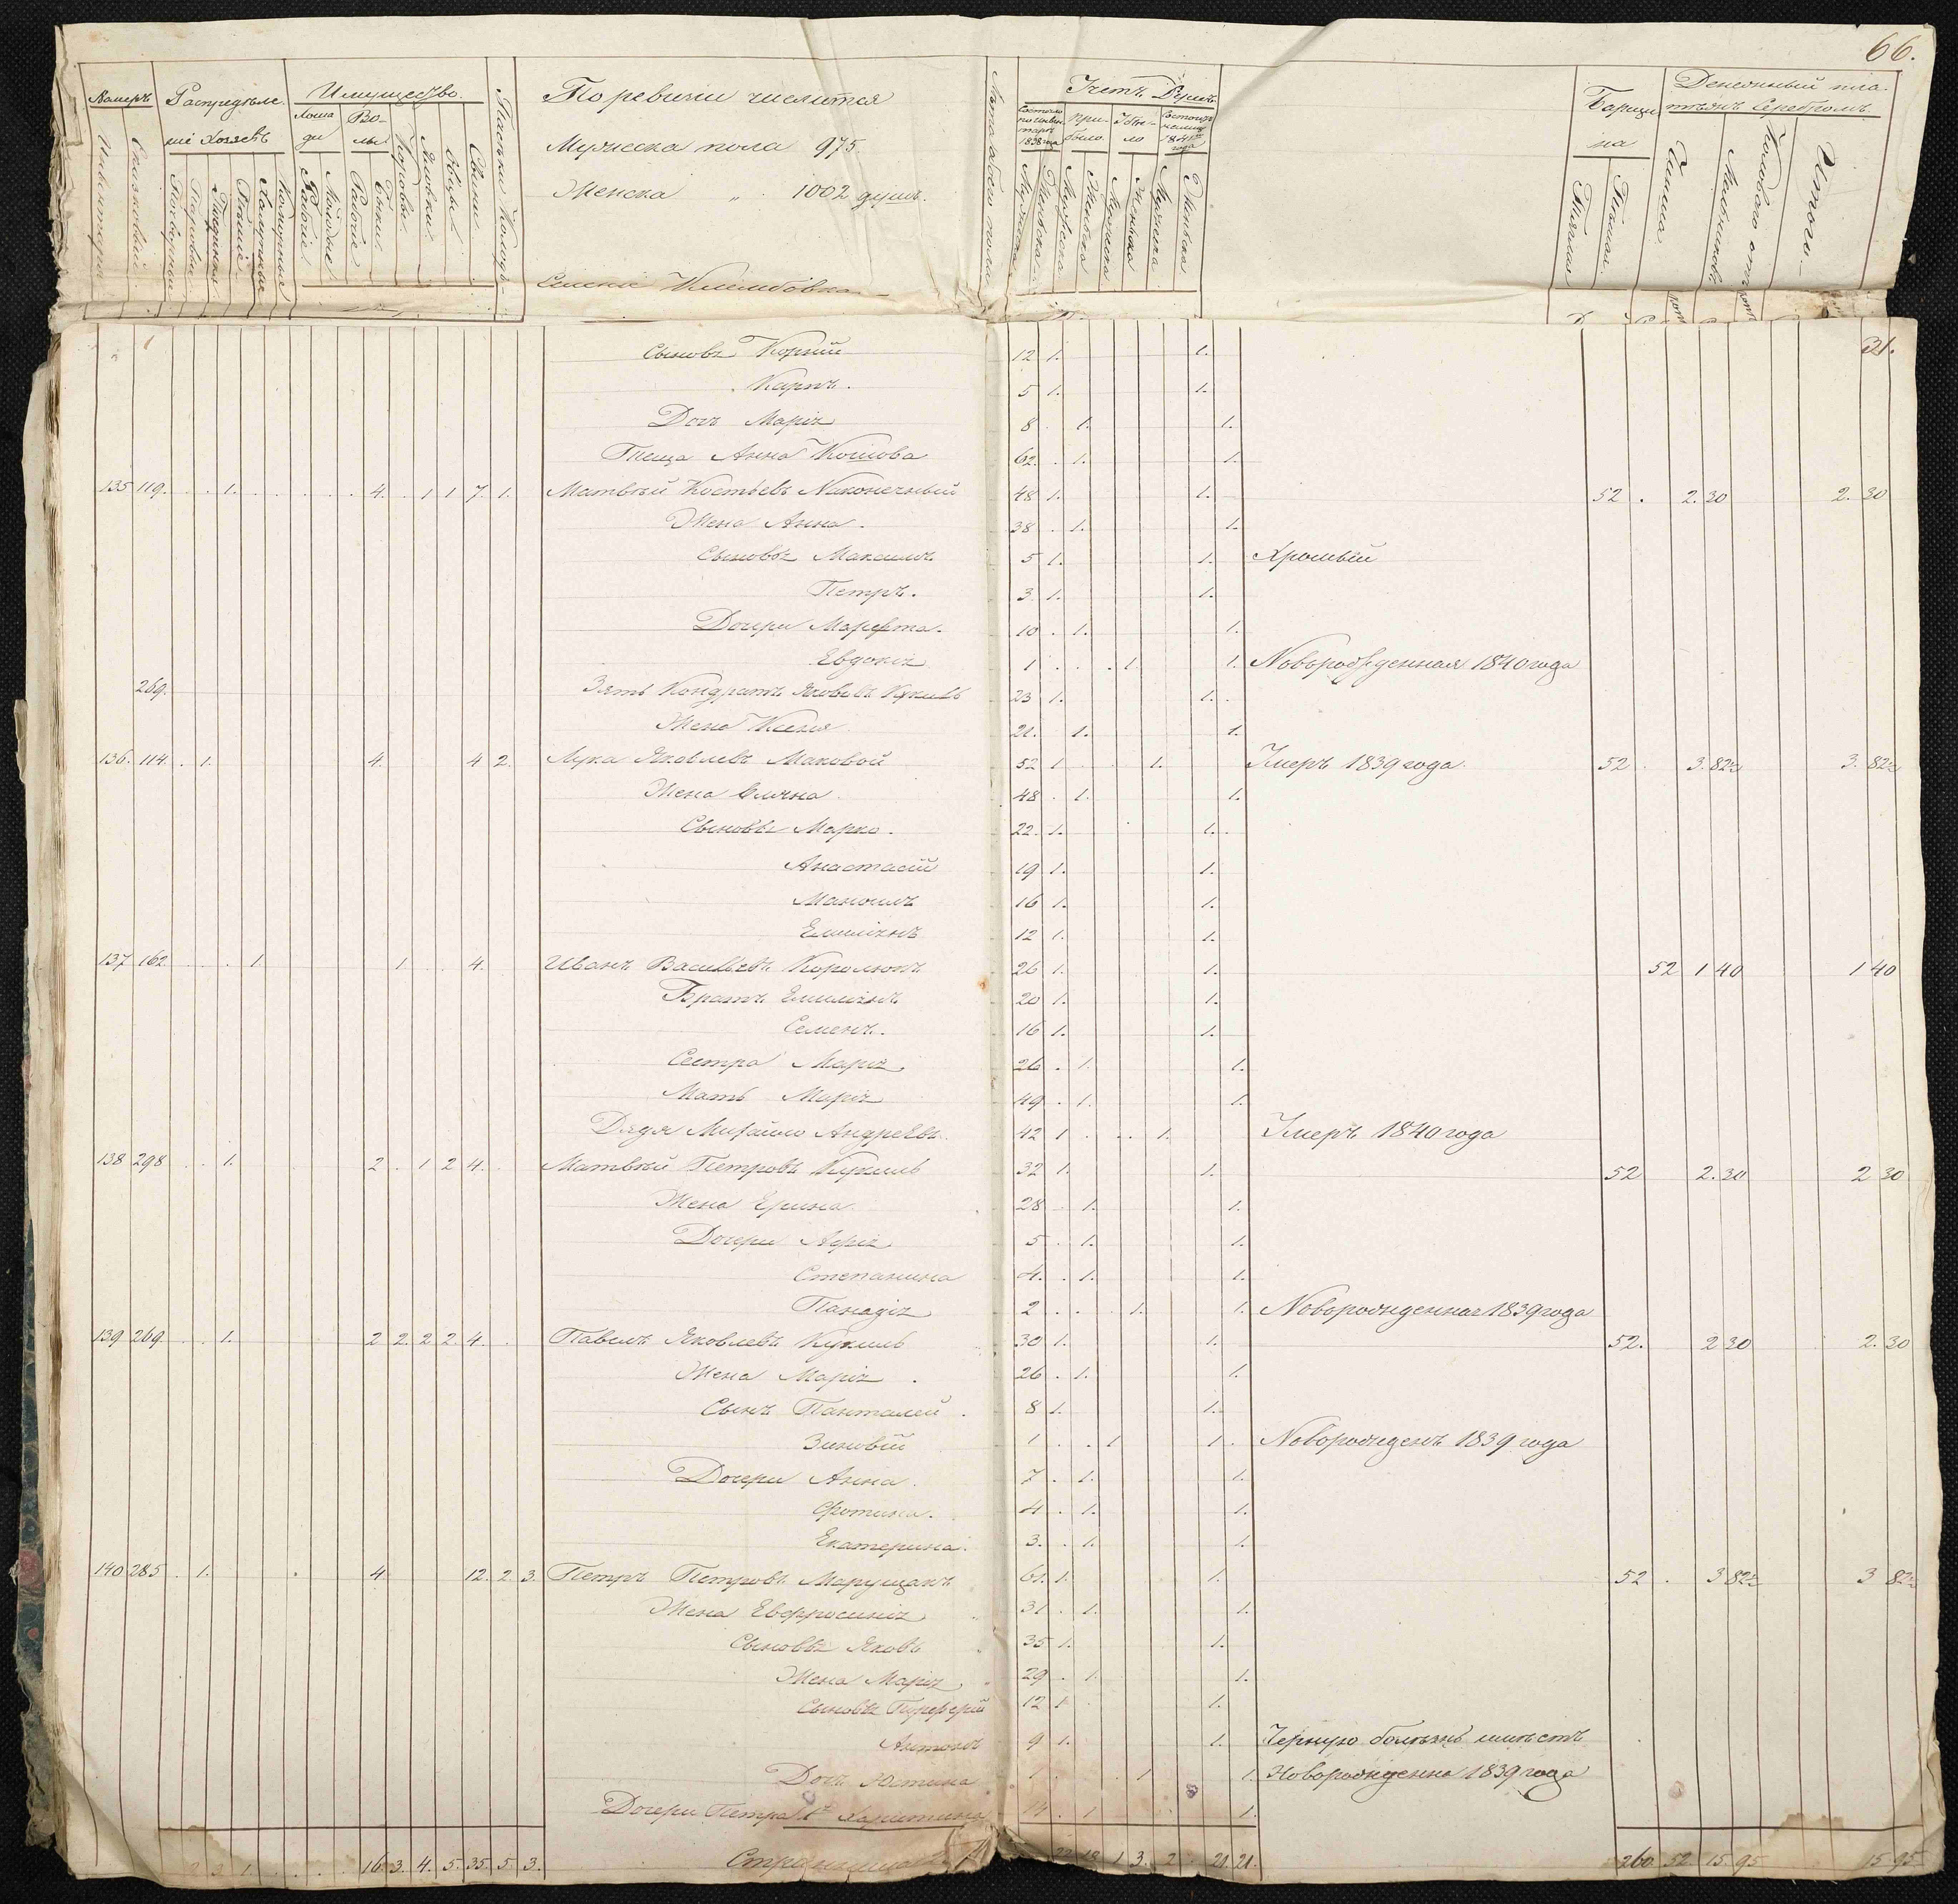 66.
Номеръ Распредѣле- Имущество. По ревизіи числится Учетъ Душъ Барщи- Денежный пла-
ніе Хозяевъ Лоша- Во- Мужеска пола 975. на тежъ Серебромъ
ди лы Женска „ 1002 душъ. Прибыло Убыло 1838 года 1841 года
Инвентаря Рабочіе Молодые Рабочіе Бычки Коровы Яловки Овцы Свиньи Мужеска Женска Мужеска Женска Мужеска Женска Мужеска Женска Тяглая Пѣшая Чинша Итого
Селеніе
31.
Сыновья Корній 12 1. 1.
Карпъ. 5 1. 1.
Дочь Марія 8 . 1. 1.
Теща Анна 62. . 1. 1.
135 119. . . 1. . . . . . 4. . 1 1 7. 1. Матвѣй Костьевъ Наконечный 48 1. 1. 52 . 2. 30 2. 30
Жена Анна. 38 . 1. 1.
Сыновья Максимъ 5 1. 1. Хромый
Петръ. 3. 1. 1.
Дочери Марфта. 10 . 1. 1.
Евдокія 1 . . . 1. 1. Новорожденная 1840 года
269. Зять Кондратъ Яковлевъ Кукиль 23 1. 1.
Жена Ксенія 21. 1. 1.
136. 114. . 1. 4. 4 2. Лука Яковлевъ Маковой 52 1 . . 1. Умеръ 1839 года. 52 . 3. 82½ 3. 82½
Жена Елена. 48 . 1. 1.
Сыновья Марко. 22. 1. 1.
Анастасій 19 1. 1.
Мануилъ 16 1. 1.
Емиліянъ 12 1. 1.
137 162. . . . 1. 1 . . 4. Иванъ Васильевъ Королюкъ 26 1. 1. 52 1 40 1 40
Братъ Емиліянъ 20 1. 1.
Семенъ. 16 1. 1.
Сестра Марія 26 . 1. 1.
Мать Марія 49 . 1. 1.
Дядя Михайло Андреевъ. 42 1 . . . 1. Умеръ 1840 года
138 298 . . 1. 2 . 1 2 4. . Матвѣй Петровъ Кукиль 32 1. 1. 52 2. 30 2 30
Жена Ерина. 28 . 1. 1.
Дочери Афія 5 . 1. 1.
Степанина 4. . 1. 1.
Панадія 2 . . . 1. 1. Новорожденная 1839 года
139 269. . . 1. 2 2. 2 2. 4. . Павелъ Яковлевъ Кукиль 30 1. 1. 52. 2 30 2. 30
Жена Марія. 26 . 1. 1.
Сынъ Панталей. 8 1. 1.
Зиновій 1 . . 1 1. Новорожденъ 1839 года
Дочери Анна. 7 . 1. 1.
Фотина. 4 . 1. 1.
Екатерина. 3. . 1. 1.
140 285 . 1. 4. 12. 2. 3. Петръ Петровъ Марущакъ 61. 1. 1. 52 . 3 82½ 3 82½
Жена Евфросинія 31 . 1. 1.
Сыновья Яковъ 35 1. 1.
Жена Марія 29 . 1. 1.
Сыновья 12 1. 1.
Антонъ 9 1. 1. Черную болѣзнь имѣетъ
Дочь Юстина 1 . . 1 1. Новорожденна 1839 года
Дочери Петра 1ᵃ Харитина 14 . 1 1.
2 3 1 . . . . 16. 3. 4. 5. 35. 5. 3. 1 3. 2 . 21 21. 260 52 15. 95 15 95